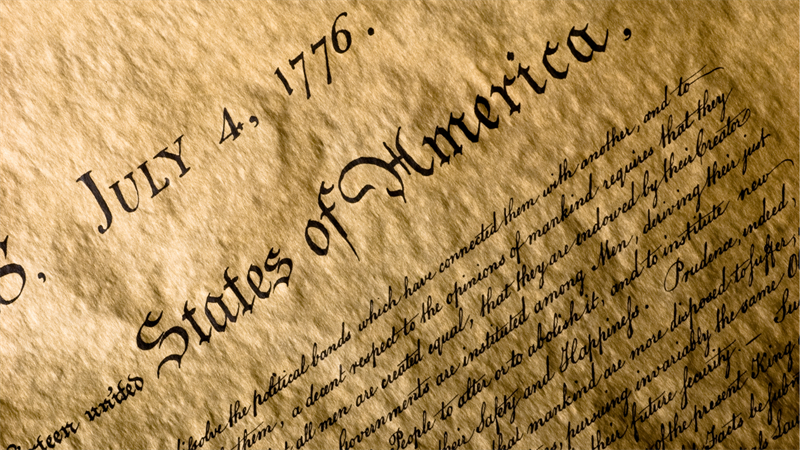 S, JULY 4, 1776.
teen united States of America,
dissolve the political bands which have connected them with another, and to
them, a decent respect to the opinions of mankind requires that they
all men are created equal, that they are endowed by their Creator
Governments are instituted among Men, deriving their just
People to alter or to abolish it, and to institute new
their Safety and Happiness. Prudence, indeed,
that mankind are more disposed to suffer,
pursuing invariably the same O
their future security —
of the present King
Facts be subm